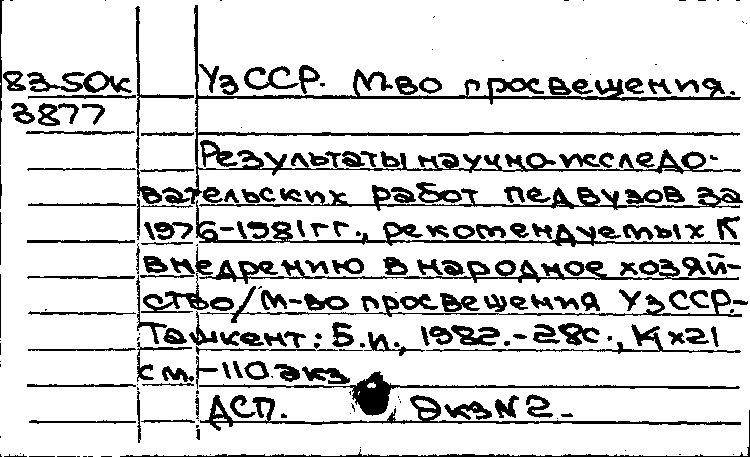 83-50к УзССР. М-во просвещения.
3877
Результаты научно-исследо-
вательских работ педвузов за
1976-1981гг., рекомендуемых к
внедрению в народное хозяй-
ство/М-во просвещения УзССР.-
Ташкент: Б.и., 1982.-28с., 14х21
см.-110 экз
ДСП. Экз N 2-